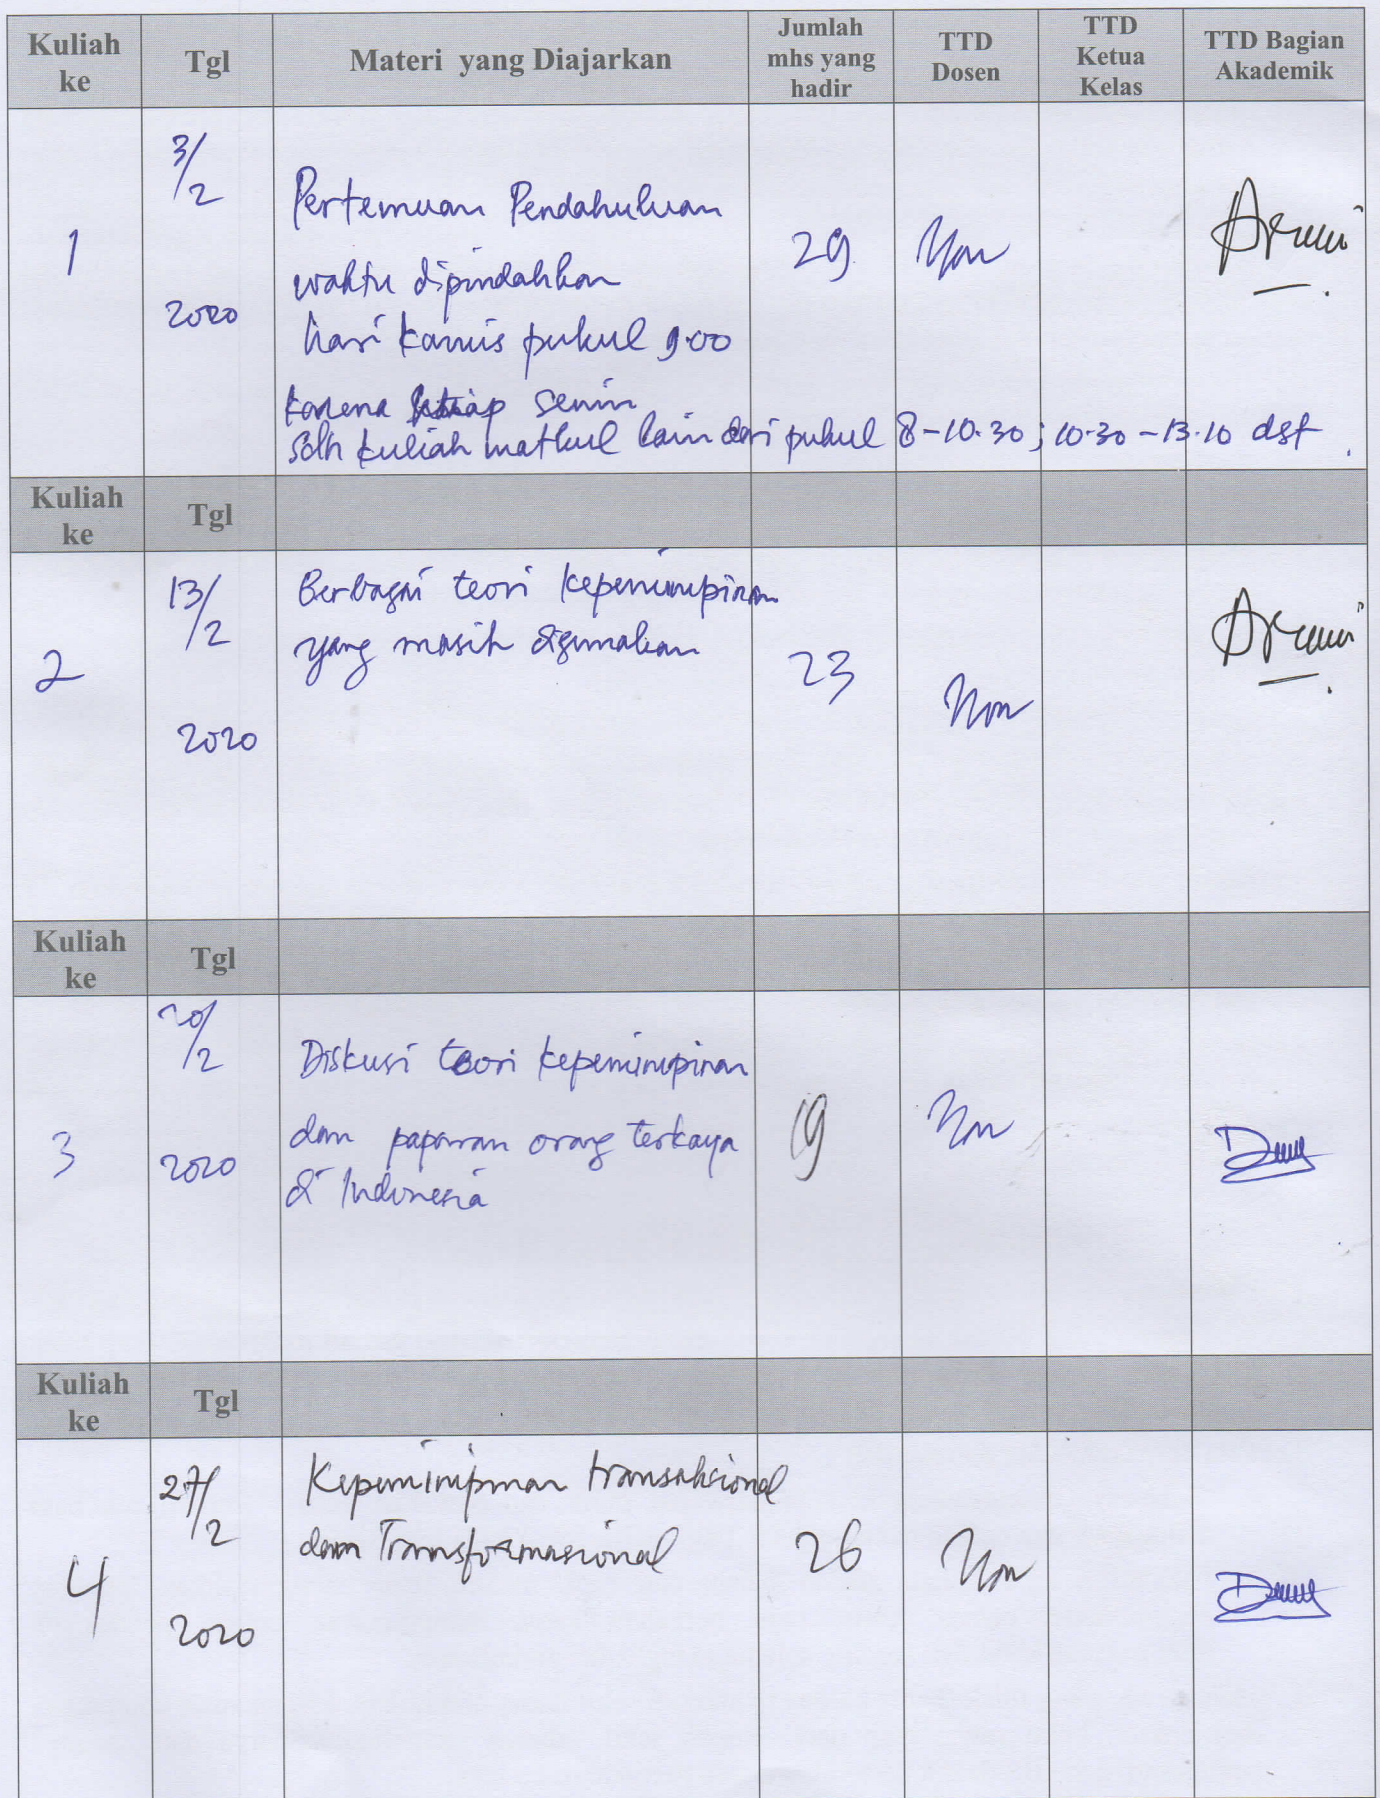 Kuliah ke Tgl Materi yang Diajarkan Jumlah mhs yang hadir TTD Dosen TTD Ketua Kelas TTD Bagian Akademik
1 3/2 2020 29
Pertemuan Pendahuluan
waktu dipindahkan
hari kamis pukul 9.00
karena setiap senin
sdh kuliah matkul lain dari pukul 8-10.30; 10.30-13.10 dst.
Kuliah ke Tgl
2 13/2 2020 23
Berbagai teori kepemimpinan
yang masih digunakan
Kuliah ke Tgl
3 20/2 2020 19
Diskusi teori kepemimpinan
dan paparan orang terkaya
di Indonesia
Kuliah ke Tgl
4 27/2 2020 26
Kepemimpinan transaksional
dan Transformasional